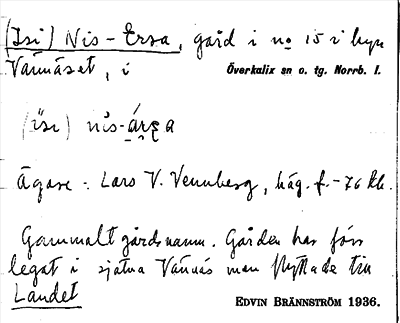 (Isi) Nis-Ersa, gård i no 15 i byn
Vännäset, i Överkalix sn o. tg. Norrb. l.
( isi) nis-árṣa
Ägare: Lars V. Vennberg, häg. f. -76 kl.
Gammalt gårdsnamn. Gården har förr
legat i själva Vännäs men flyttade till
Landet
EDVIN BRÄNNSTRÖM 1936.